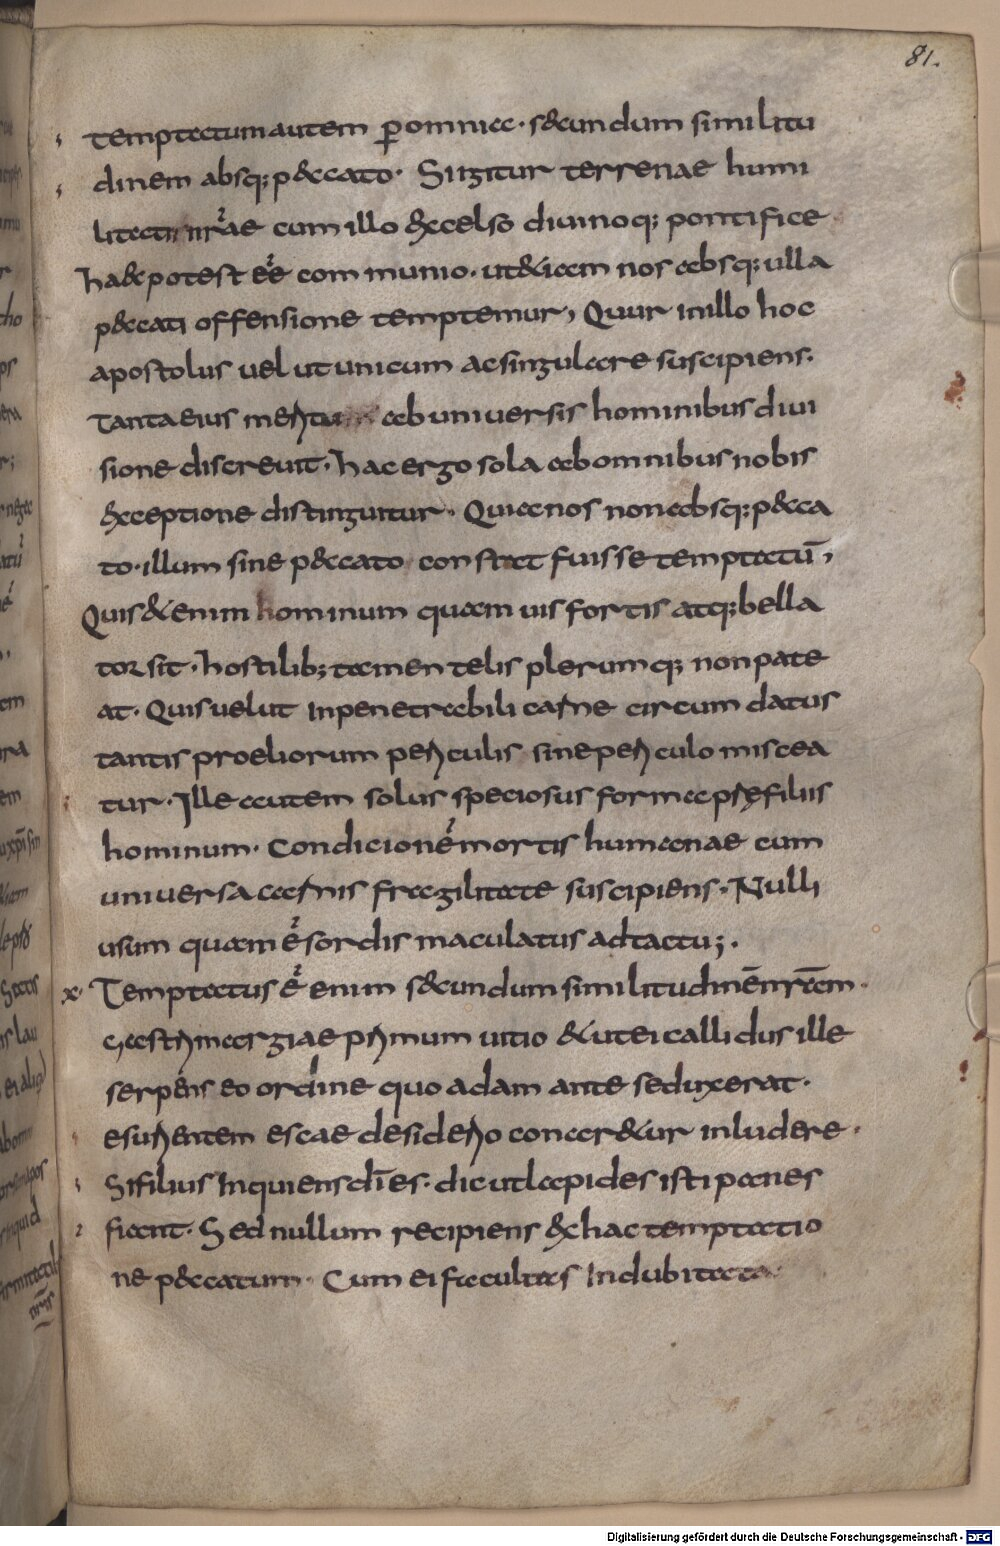 81.
temptatum autem ꝑ omnia · s&cundum similitu
dinem absq; p&ccato · Si igitur terrenae humi
litati nr̃ae cum illo &xcelso diuinoq; pontifice
haec potest eẽ communio · ut & iam nos absq; ulla
p&ccati offensione temptemur, Quur in illo hoc
apostolus uel ut unicum ac singulare suscipiens ·
Tanta eius meritum ab uniuersis hominibus diui
sione discreuit · hac ergo sola ab omnibus nobis
&xceptione distinguitur · Quia nos non absq; p&cca
to · illum sine p&ccato constat fuisse temptatū,
Quis & enim hominum quam uis fortis atq; bella
tor sit · hostilib; tamen telis plerumq; non pate
at · Quis uelut inpenetrabili carne circumdatus
tantis proeliorum periculis sine periculo miscea
tur · Ille autem solus speciosus forma prę filiis
hominum · Condicionē mortis humanae cum
uniuersa carnis fragilitate suscipiens · Nulli
usum quam ẽ sordis maculatus adtactu; ·
x · Temptatus ẽ enim s&cundum similitudinē nr̄am ·
Gastrimargiae primum uitio & utei callidus ille
serpens eo ordine quo adam ante seduxerat ·
esurientem escae desiderio conar&ur inludere ·
Si filius inquiens dī es · dic ut lapides isti panes
fiant · Sed nullum recipiens &x hac temptatio
ne p&ccatum · Cum ei facultas indubitata
Digitalisierung gefördert durch die Deutsche Forschungsgemeinschaft - DFG